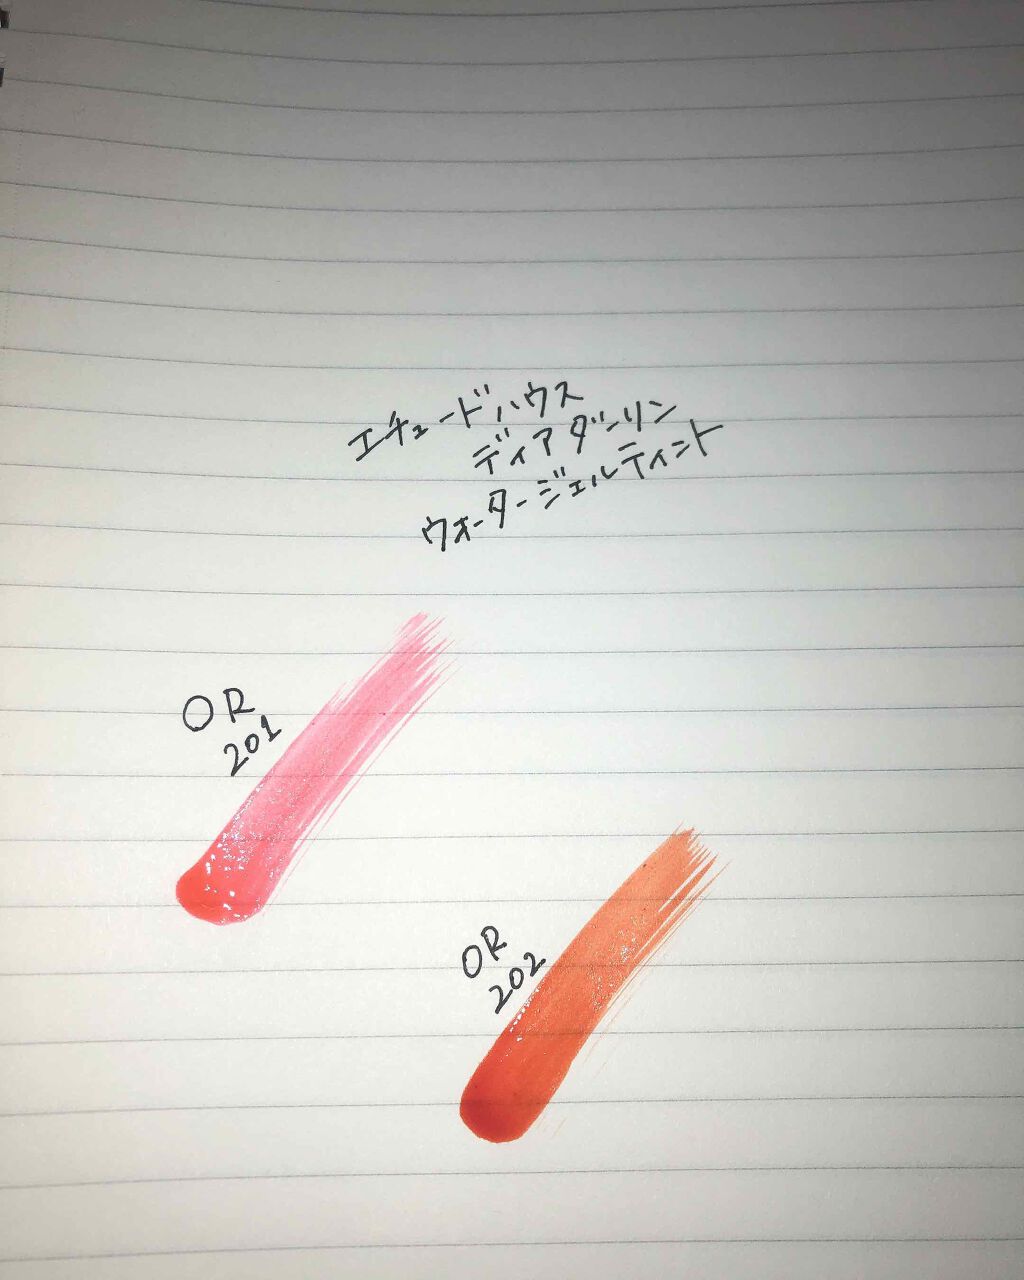 エチュードハウス
ディアダーリン
ウォータージェルティント
OR
201
OR
202